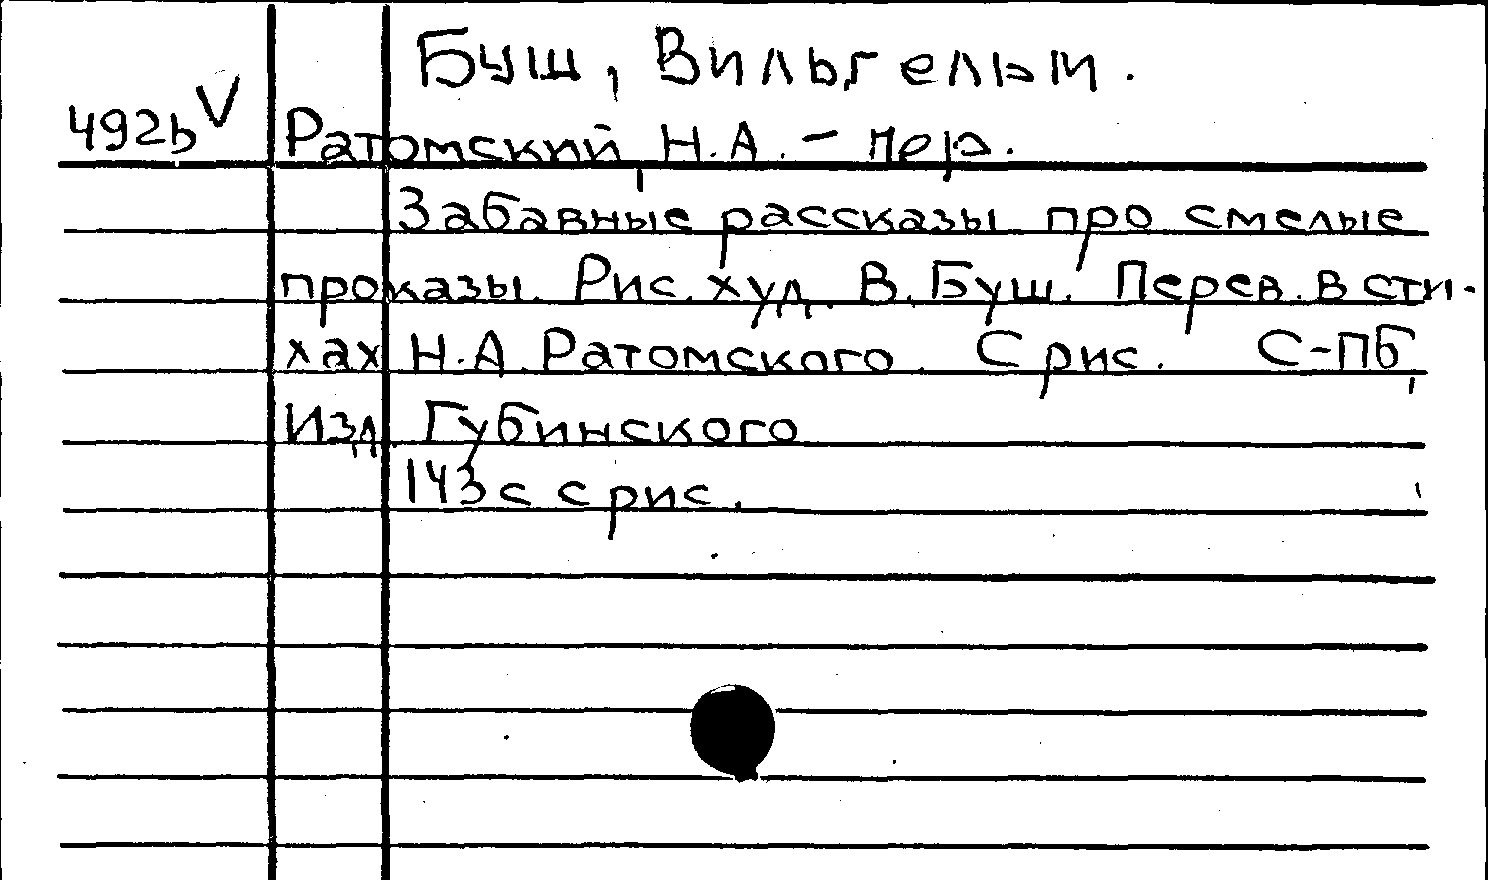 Буш, Вильгельм.
492b V Ратомский Н.А. - пер.
Забавные рассказы про смелые
проказы. Рис. худ. В. Буш. Перев. в сти-
хах Н.А. Ратомского. С рис. С-ПБ,
Изд. Губинского
143с с рис.